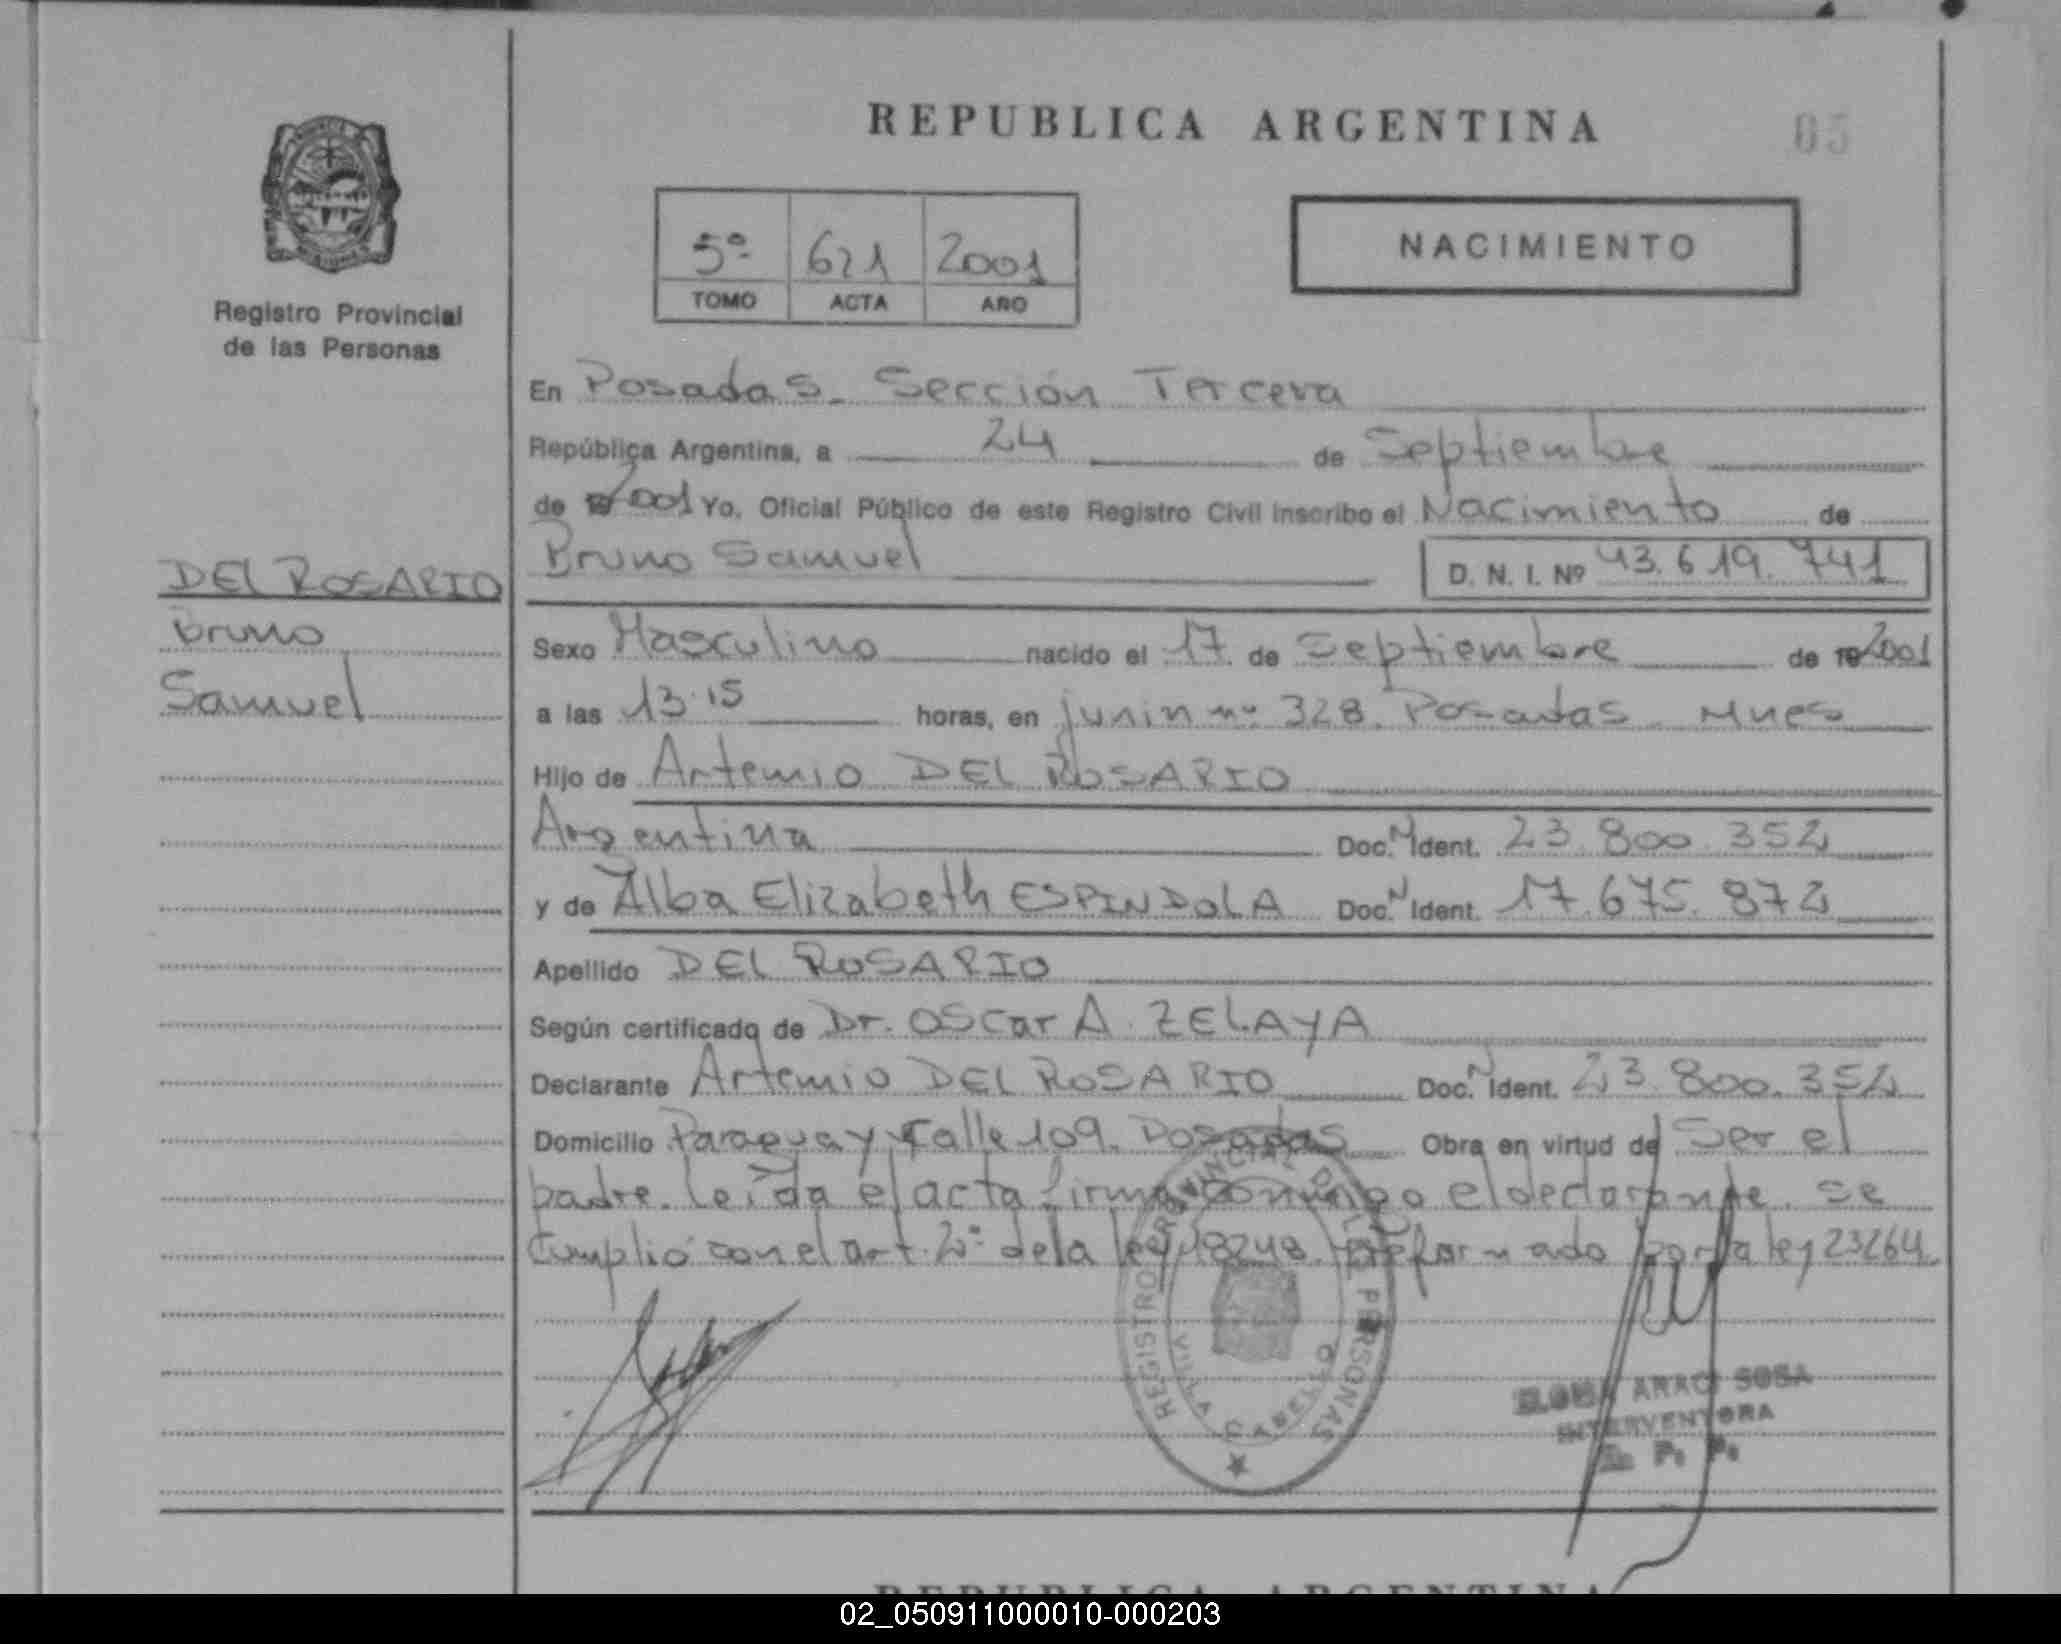 REPUBLICA ARGENTINA
05
5º 621 2001
TOMO ACTA AÑO
NACIMIENTO
Registro Provincial
de las Personas
En Posadas - Sección Tercera
República Argentina, a 24 de Septiembre
de 2001 Yo, Oficial Público de este Registro Civil inscribo el Nacimiento de
Bruno Samuel D. N. I. Nº 43.619.741
DEL ROSARIO
Bruno
Samuel
Sexo Masculino nacido el 17 de Septiembre de 2001
a las 13.15 horas, en Junin nº 328. Posadas Mnes
Hijo de Artemio DEL ROSARIO
Argentina Doc. N Ident. 23.800.352
y de Alba Elizabeth ESPINDOLA Doc. N Ident. 17.675.872
Apellido DEL ROSARIO
Según certificado de Dr. Oscar A. ZELAYA
Declarante Artemio DEL ROSARIO Doc. N Ident. 23.800.352
Domicilio Paraguay y Calle 109. Posadas Obra en virtud de Ser el
padre. Leída el acta firma conmigo el declarante. se
Cumplió con el art. 2º de la ley 18248. reformado por la ley 23264.
REGISTRO PROVINCIAL DE LAS PERSONAS
VILLA CABELLO
ARACI SOSA
INTERVENTORA
R. P. P.
REPUBLICA ARGENTINA
02_050911000010-000203